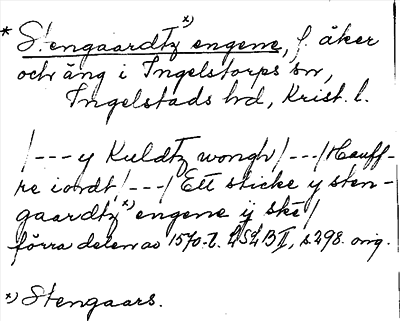 * Stengaardtz x) engene, f. åker
och äng i Ingelstorps sn,
Ingelstads hd, Krist. l.
/--- y Kuldtz wongh /---/ Hauff-
re iordt /---/ Ett sticke y sten-
gaardtz x) engene ÿ skê /
förra delen av 1570-t. LSLB II, s 298. orig.
x) Stengaars.